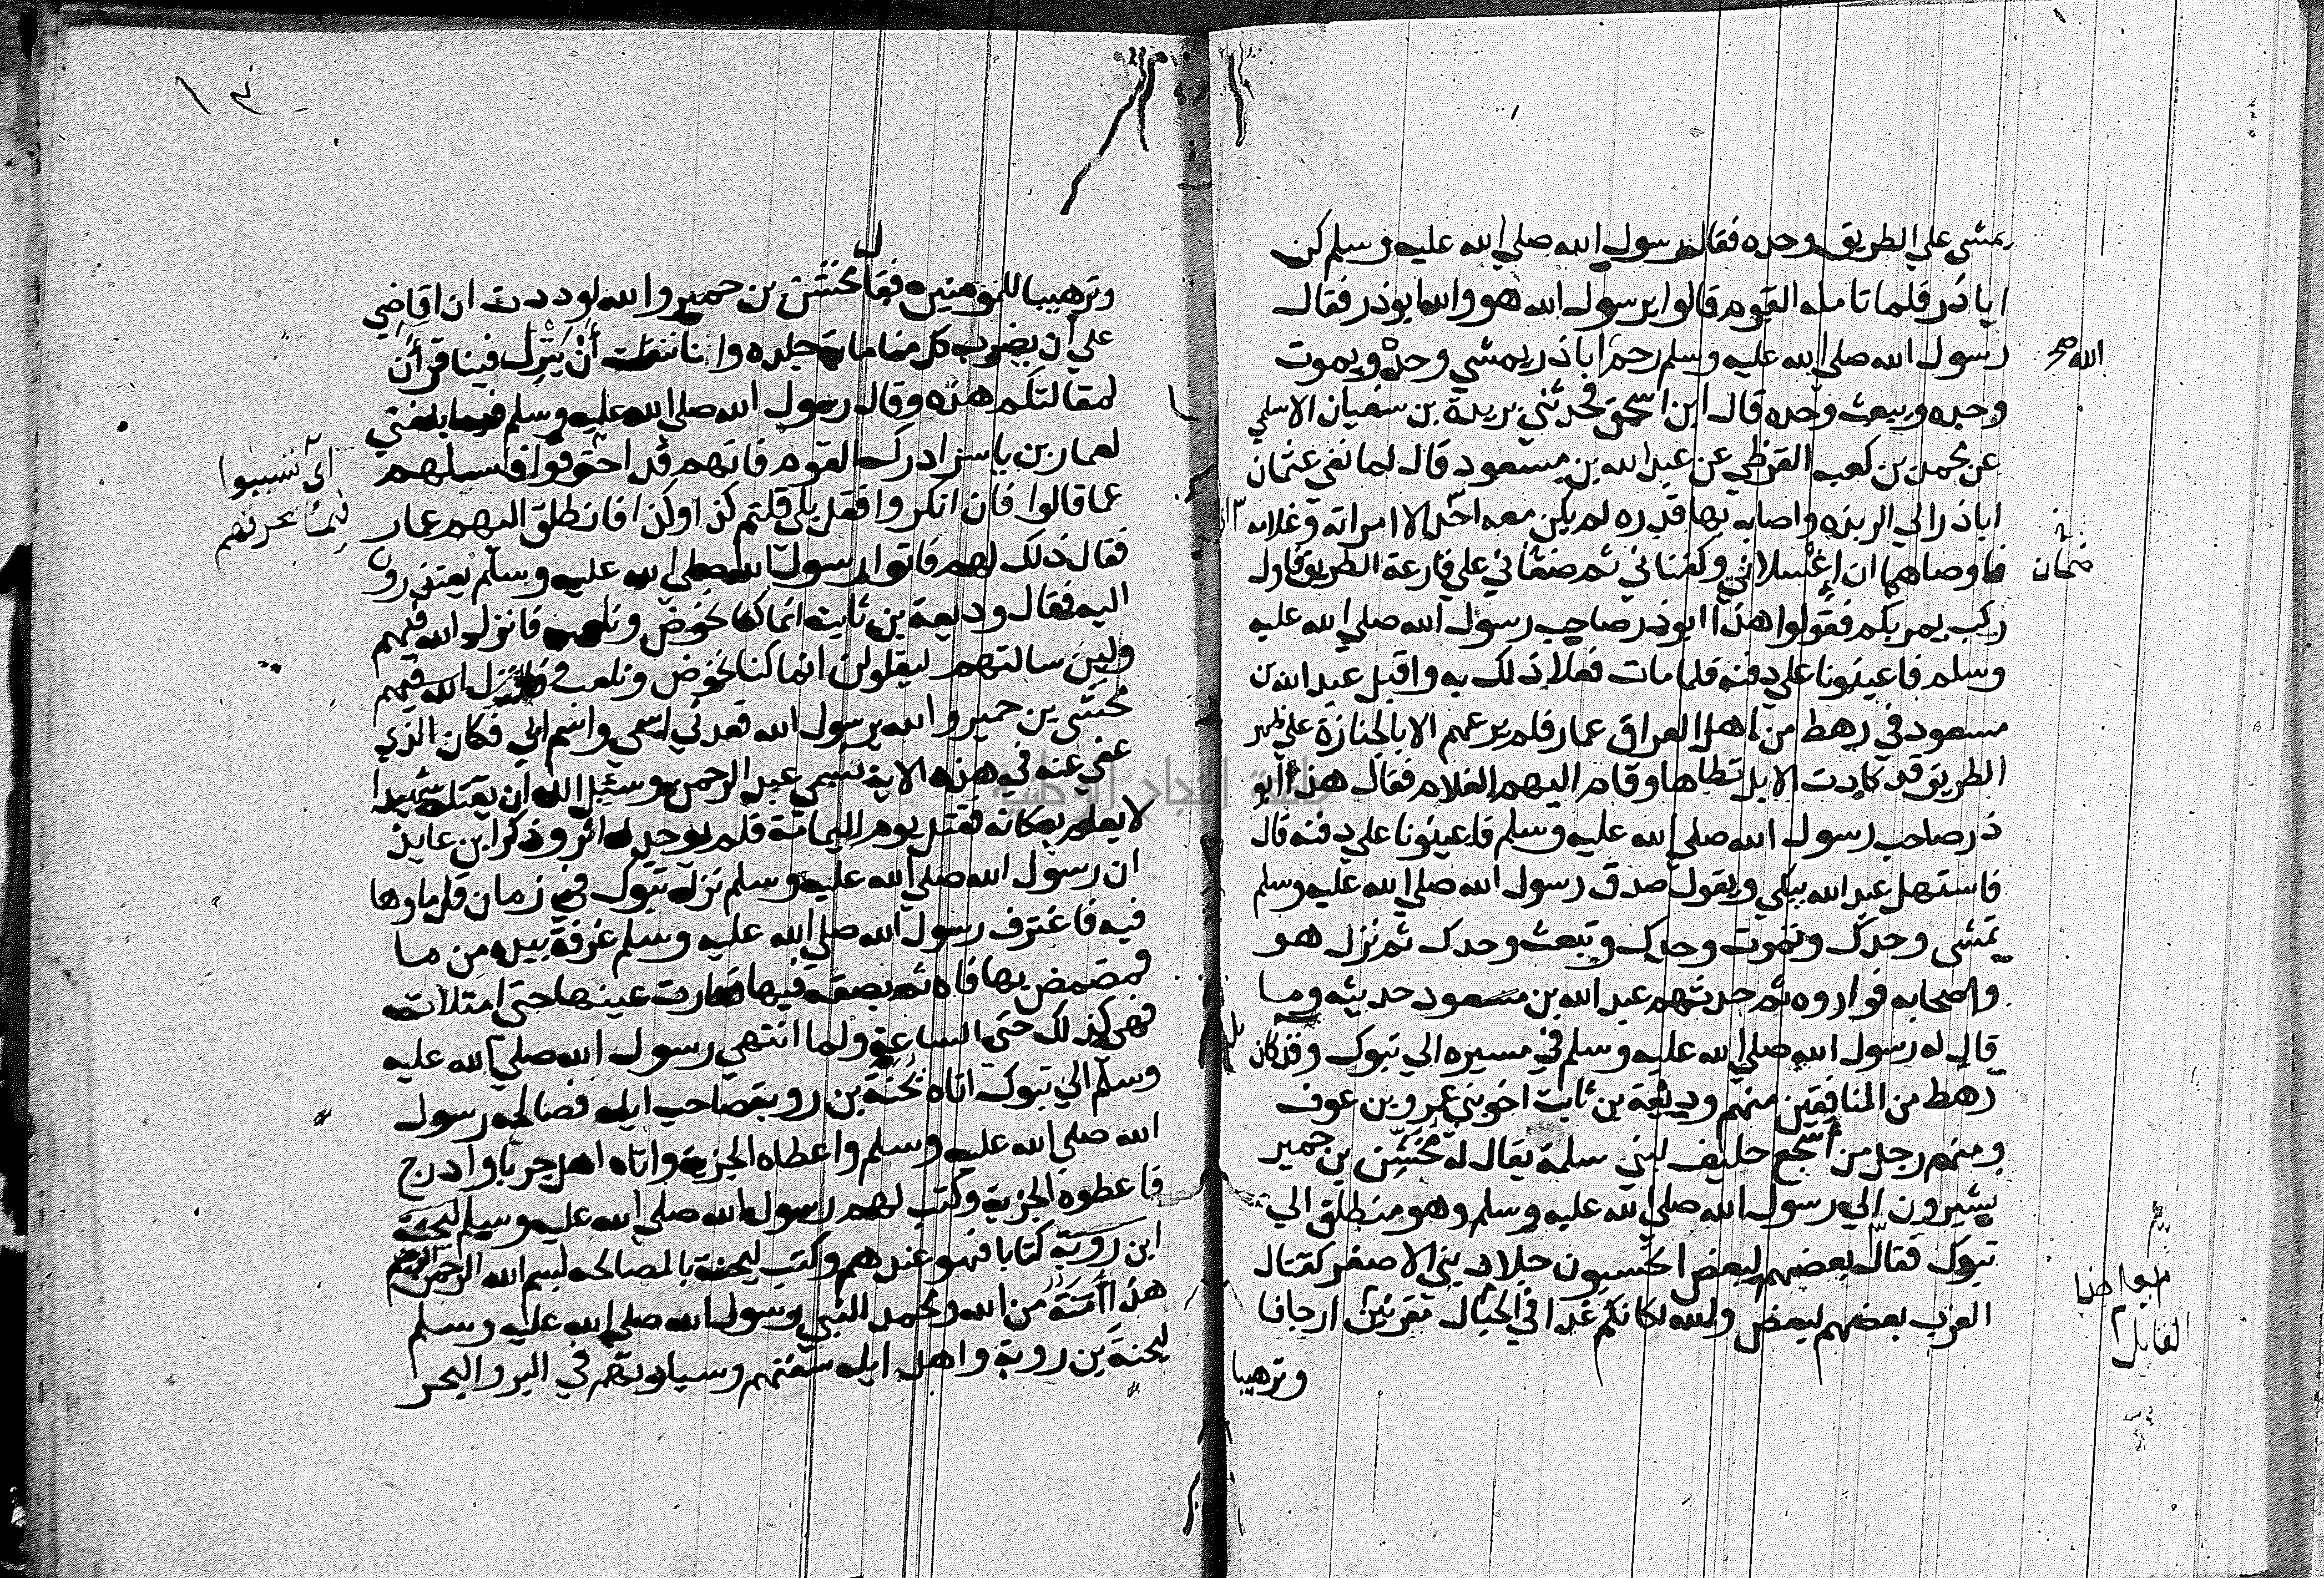 يمشي علي الطريق وحده فقال رسول الله صلي الله عليه وسلم كن
ابا ذر فلما تامله القوم قالوا يرسول الله هو والله ابو ذر فقال
رسول الله صلي الله عليه وسلم رحم ابا ذر يمشي وحده ويموت
الله
وحده ويبعث وحده قال ابن اسحق فحدثني بريدة بن سفيان الاسلمي
عن محمد بن كعب القرظي عن عبد الله بن مسعود قال لما نفي عثمان
ابا ذر الي الربذه واصابه بها قدره لم يكن معه احد الا امراته وغلامه
فاوصاهما ان اغسلاني وكفناني ثم ضعاني علي قارعة الطريق فاول
ركب يمر بكم فقولوا هذا ابو ذر صاحب رسول الله صلي الله عليه
وسلم فاعينونا علي دفنه فلما مات فعلا ذلك به واقبل عبد الله بن
مسعود في رهط من اهل العراق عمار فلم يرعهم الا بالجنازة علي ظهر
الطريق قد كادت الابل تطاها وقام اليهم الغلام فقال هذا ابو
ذر صاحب رسول الله صلي الله عليه وسلم فاعينونا علي دفنه قال
فاستهل عبد الله يبكي ويقول صدق رسول الله صلي الله عليه وسلم
تمشي وحدك وتموت وحدك وتبعث وحدك ثم نزل هو
واصحابه فواروه ثم حدثهم عبد الله بن مسعود حديثه وما
قال له رسول الله صلي الله عليه وسلم في مسيره الي تبوك وقد كان
رهط من المنافقين منهم وديعة بن ثابت اخو بني عمرو بن عوف
ومنهم رجل من اشجع حليف لبني سلمة يقال له مخشن بن حمير
يشيرون الي رسول الله صلي الله عليه وسلم وهو منطلق الي
تبوك فقال بعضهم لبعض اتحسبون جلاد بني الاصفر كقتال
العرب بعضهم لبعض والله لكانكم غدا في الحبال مقرنين ارجافا
وترهيبا
وترهيبا للمومنين فقال مخشن بن حمير والله لوددت ان اقاضي
علي أن يضرب كل منا ماية جلده وانا ننفلت أن ينزل فينا قرأن
لمقالتكم هذه وقال رسول الله صلي الله عليه وسلم فيما بلغني
لعمار بن ياسر ادرك القوم فانهم قد احترقوا فسلهم
عما قالوا فان انكروا فقل بلي قلتم كذا وكذا فانطلق اليهم عمار
فقال ذلك لهم فاتوا رسول الله صلي الله عليه وسلم يعتذرون
اليه فقال وديعة بن ثابت انما كنا نخوض ونلعب فانزل الله فيهم
ولين سالتهم ليقولن انما كنا نخوض ونلعب الله فيهم
مخشي بن حمير والله يرسول الله قعد بي اسمي واسم ابي فكان الذي
عفي عنه في هذه الاية تسمي عبد الرحمن وسئل الله ان يقتله شهيدا
لا يعلم بمكانه فقتل يوم اليمامة فلم يوجد له اثر وذكر ابن عايذ
ان رسول الله صلي الله عليه وسلم نزل تبوك في زمان قل ماوها
فيه فاغترف رسول الله صلي الله عليه وسلم غرفة بيده من ما
فمضمض بها فاه ثم بصقه فيها ففارت عينها حتي امتلات
فهي كذلك حتي الساعة ولما انتهي رسول الله صلي الله عليه
وسلم الي تبوك اتاه يحنة بن روبة صاحب ايله فصالحه رسول
الله صلي الله عليه وسلم واعطاه الجزية واتاه اهل جربا واذرح
فاعطوه الجزية وكتب لهم رسول الله صلي الله عليه وسلم ليحنة
ابن روبة كتابا فهو عندهم وكتب ليحنة بالمصالحه بسم الله الرحمن الرحيم
هذا أمنة من الله ومحمد النبي رسول الله صلي الله عليه وسلم
ليحنة بن روبة واهل ايله سفنهم وسيارتهم في البر والبحر